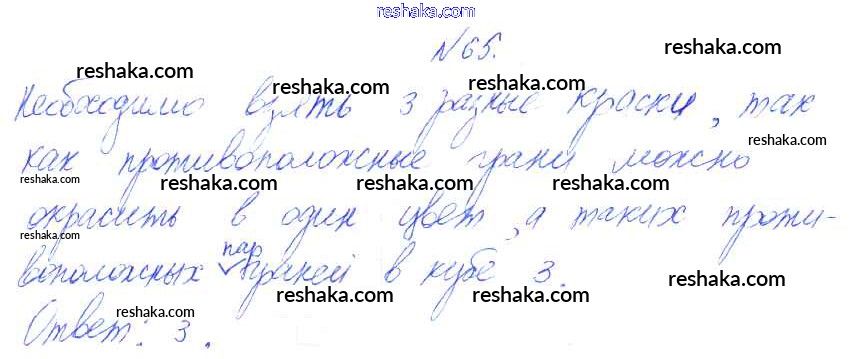 reshaka.com
N65. reshaka.com
reshaka.com reshaka.com reshaka.com
Необходимо взять 3 разные краски, так
reshaka.com
как противоположные грани можно
reshaka.com reshaka.com reshaka.com reshaka.com
окрасить в один цвет, а таких проти-
reshaka.com
воположных пар граней в кубе 3.
reshaka.com reshaka.com reshaka.com
reshaka.com reshaka.com
Ответ: 3.